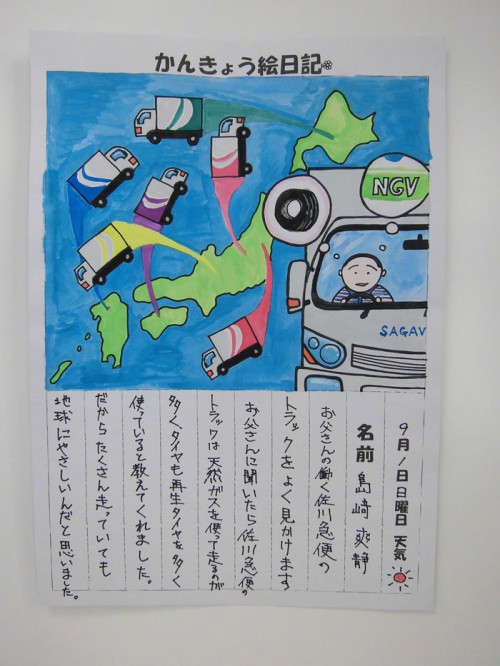 かんきょう絵日記
NGV
SAGAV
9月1日日曜日 天気
名前 島崎爽静
お父さんの働く佐川急便の
トラックをよく見かけます
お父さんに聞いたら佐川急便の
トラックは天然ガスを使って走るのが
多く、タイヤも再生タイヤを多く
使っていると教えてくれました。
だからたくさん走っていても
地球にやさしいんだと思いました。